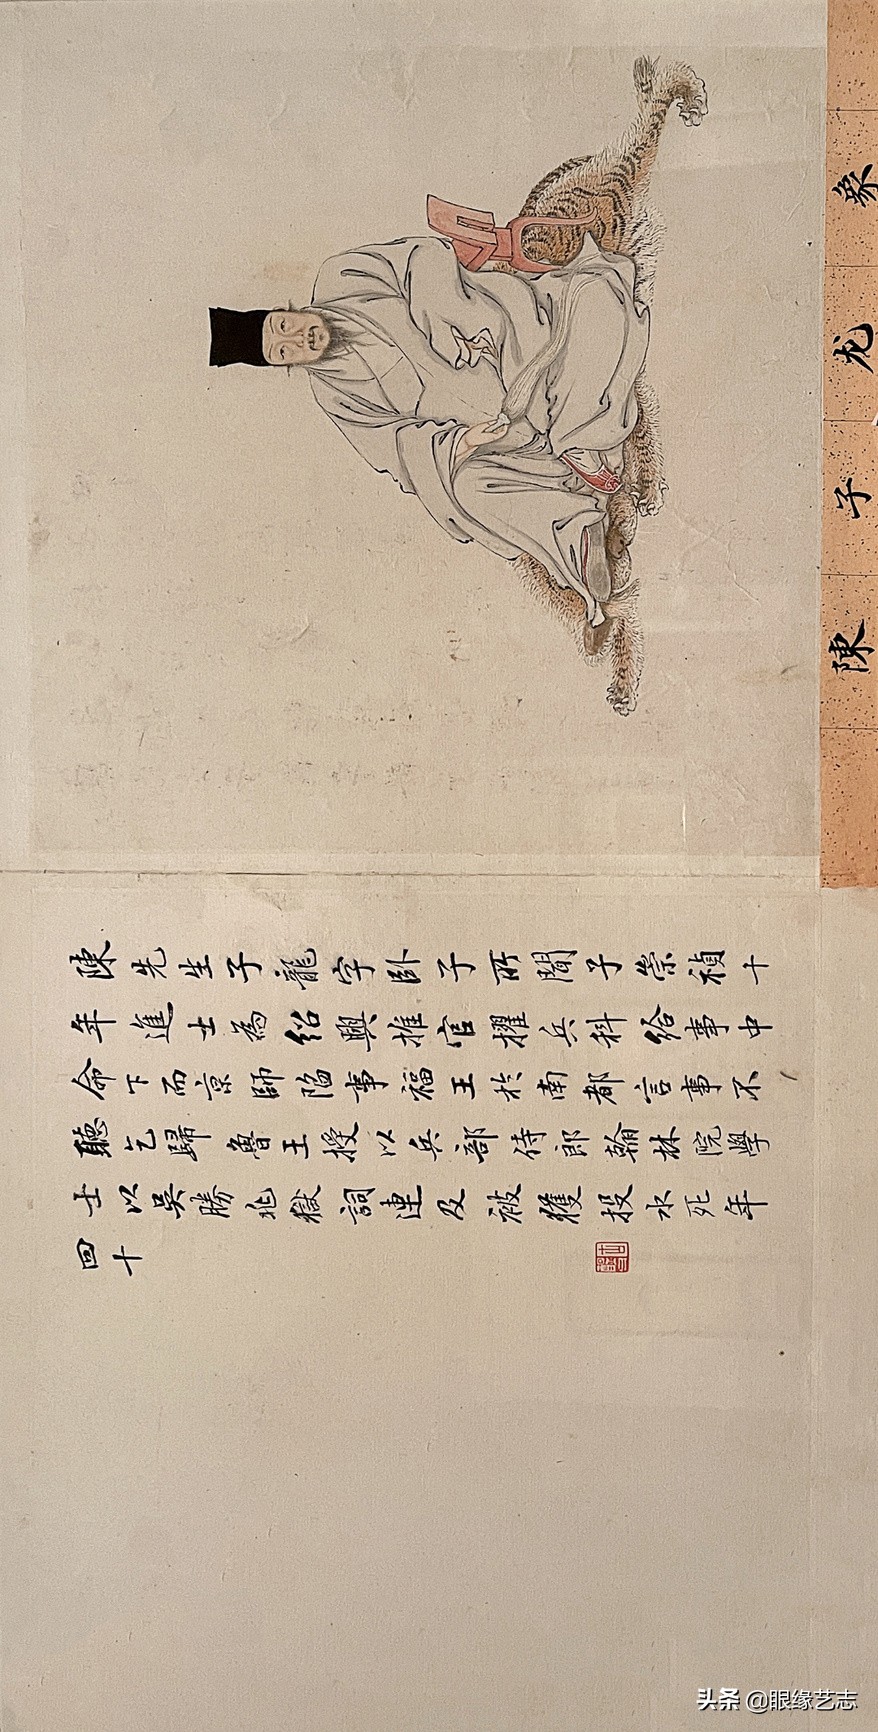 陳子龙象
陳先生子龍字臥子所聞子崇禎十
年進士為紹興推官擢兵科給事中
命下而京師陷事福王於南都言事不
聽乞歸魯王授以兵部侍郎翰林院學
士以吳勝兆獄詞連及被獲投水死年
四十
头条 @眼缘艺志